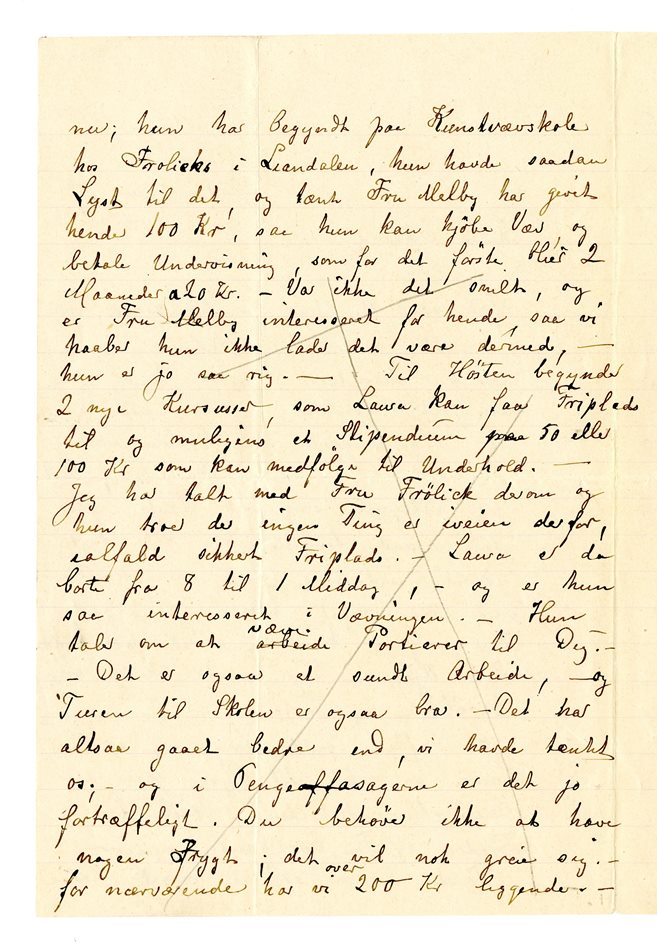 nu; hun har begyndt paa Kunstvævskole
hos Frølichs i Liandalen, hun havde saadan
Lyst til det, og tænk Fru Melby har gevet
hende 100 Kr, saa hun kan kjöbe Væv, og
betale Undervisning, som for det förste blier 2
Maaneder a 20 Kr. – Var ikke det snilt, og
er Fru Melby interesseret for hende, saa vi
haaber hun ikke lader det være dermed, –
hun er jo saa rig. — Til Hösten begynder
2 nye Kursusser, som Laura kan faa Friplads
til og muligens et Stipendium paa 50 eller
100 Kr som kan medfölge til Underhold. —
Jeg har talt med Fru Frölich derom og
hun troer der ingen Ting er iveien derfor,
ialfald sikkert Friplads. – Laura er da
borte fra 8 til 1 Middag, – og er hun
saa interesseret i Vævningen. – Hun
taler om at væve arbeide Portierer til Dig. –
– Det er ogsaa et sundt Arbeide, – og
Turen til Skolen er ogsaa bra. – Det har
altsaa gaaet bedre end, vi havde tænkt
os; – og i Pengeaffasagerne er det jo
fortræffeligt. Du behöver ikke at have
nogen Frygt, det vil nok greie sig. –
for nærværende har vi over 200 Kr liggende. –